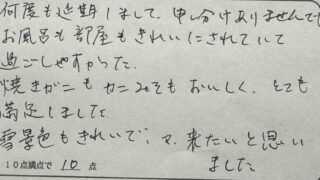 何度も延期しまして、申し分けありませんでし
お風呂も部屋もきれいにされていて
過ごしやすかった。
焼きガニもカニみそもおいしく、とても
満足しました
雪景色もきれいで、又、来たいと思い
ました
10点満点で 10 点